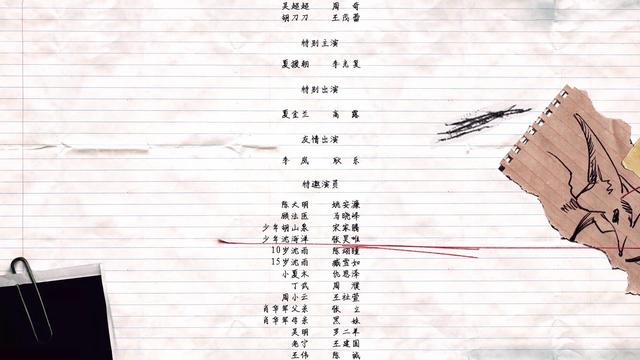 吴超超 周奇
胡刀刀 王茂蕾
特别主演
夏援朝 李光复
特别出演
夏金兰 高露
友情出演
李岚 耿乐
特邀演员
陈大明 姚安濂
顾法医 马晓峰
少年胡山泉 宋家腾
少年沈海洋 张昊唯
10岁沈雨 陈翊曈
15岁沈雨 臧云如
小夏木 仇恩泽
丁武 周濮
周小云 王杜萱
肖华军父亲 张立
肖华军母亲 黑妹
吴明 罗二羊
老宁 王建国
王伟 陈诚